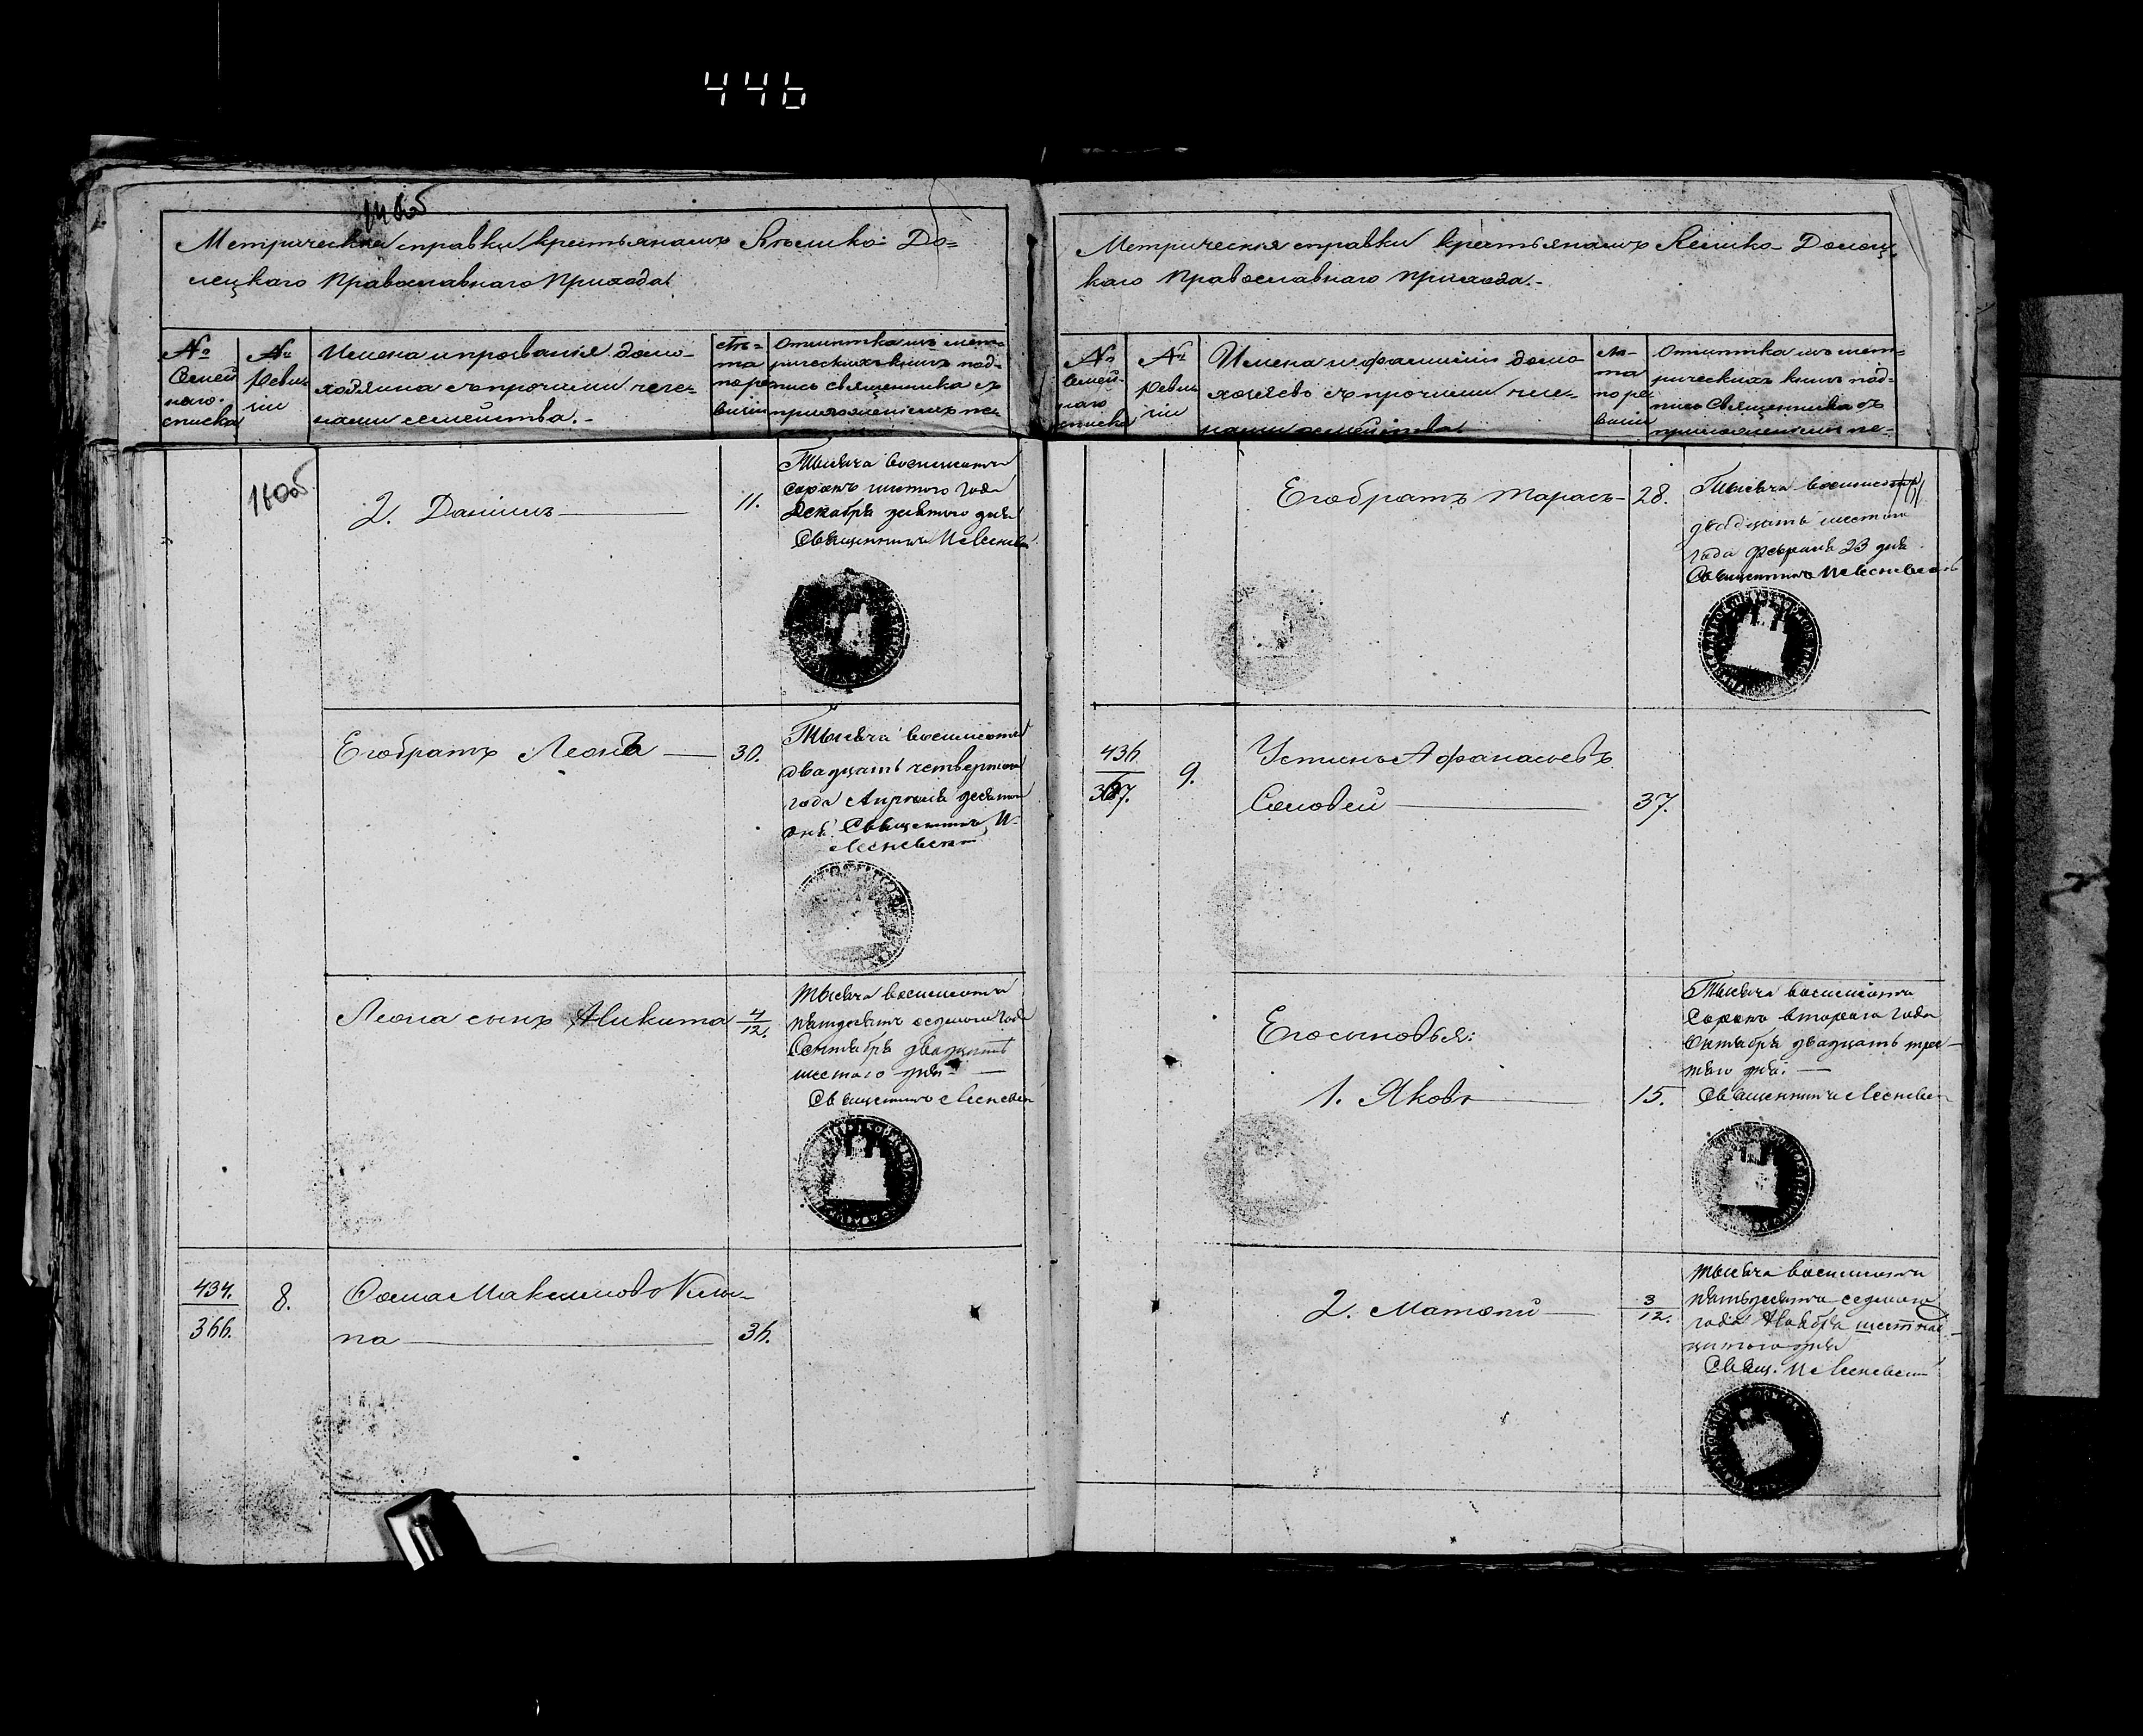 446
Метрическия справки крестьянамъ Велико До=
лецкаго Православнаго Прихода.
№ Семей наго списка
№ Ревизіи
Имена и прозванія домо-
хозяина съ прочими чле-
нами семейства.-
Лѣ=
та
по ре
визіи
Отмѣтка изъ мет=
рическихъ книгъ под=
пись священника съ
приложеніемъ пе-
160об
2. Даніилъ 11.
Тысяча восемьсотъ
сорокъ шестого года
Декабря девятого дня
Священникъ И
Его братъ Леонъ 30.
Тысяча восемьсотъ
двадцать четвертого
года Апрѣля
дня. Священникъ И.
Леона сынъ Никита 4/12.
Тысяча восемьсотъ
пятьдесятъ седьмого года
Сентября двадцать
шестого дня
Священникъ
434.
366.
8.
Фома Максимовъ
па 36.
Метрическия справки крестьянамъ Велико Долец-
каго Православнаго Прихода.-
№ Семей-
наго
списка
№ Ревизіи
Имена и фамиліи домо
хозяевъ съ прочими чле-
нами семейства
Лѣ-
та
по ре
визіи
Отмѣтка изъ мет=
рическихъ книгъ под=
пись Священника съ
приложеніемъ пе-
161
Его братъ Тарасъ 28.
Тысяча восемьсотъ
двадцать шестого
года Февраля 23 дня
Священникъ И
436
367.
9.
Устинъ Афанасьевъ
Соловей 37.
Его сыновья:
1. Яковъ 15.
Тысяча восемьсотъ
Сорокъ второго года
Октября двадцать тре-
тяго дня.
Священникъ
2. Матѳей 3/12.
Тысяча восемьсотъ
пятьдесятъ седьмого
года Ноября шестнад-
цатого дня
Свящ. И